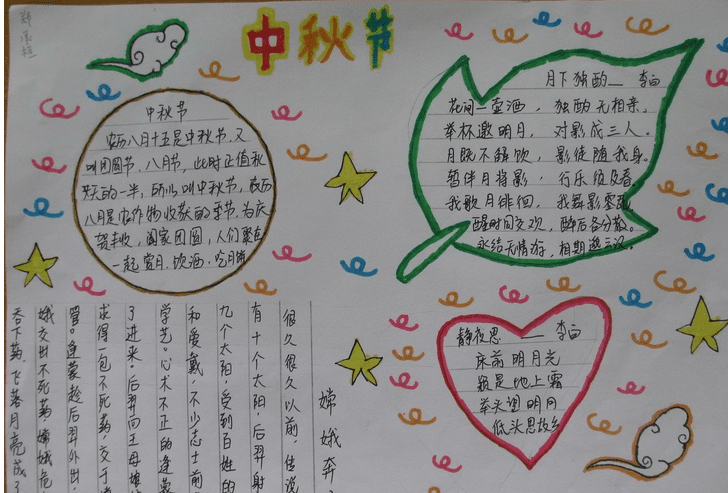 中秋节
中秋节
农历八月十五是中秋节,又
叫团圆节,八月节,此时正值秋
天的一半,所以叫中秋节,农历
八月是农作物收获的季节,为庆
贺丰收,阖家团圆,人们聚在
一起赏月.饮酒.吃月饼
月下独酌 — 李白
花间一壶酒,独酌无相亲。
举杯邀明月,对影成三人。
月既不解饮,影徒随我身。
暂伴月将影,行乐须及春。
我歌月徘徊,我舞影零乱
醒时同交欢,醉后各分散。
永结无情游,相期邈云汉。
静夜思 —— 李白
床前明月光
疑是地上霜
举头望明月
低头思故乡
嫦娥奔
很久很久以前,传说
有十个太阳,后羿射
九个太阳,受到百姓的
和爱戴,不少志士前
学艺。心术不正的逢蒙
了进来。后羿向王母娘
求得一包不死药,交于
管。逢蒙趁后羿外出,
娥交出不死药,嫦娥危
吞下药,飞落月亮成了